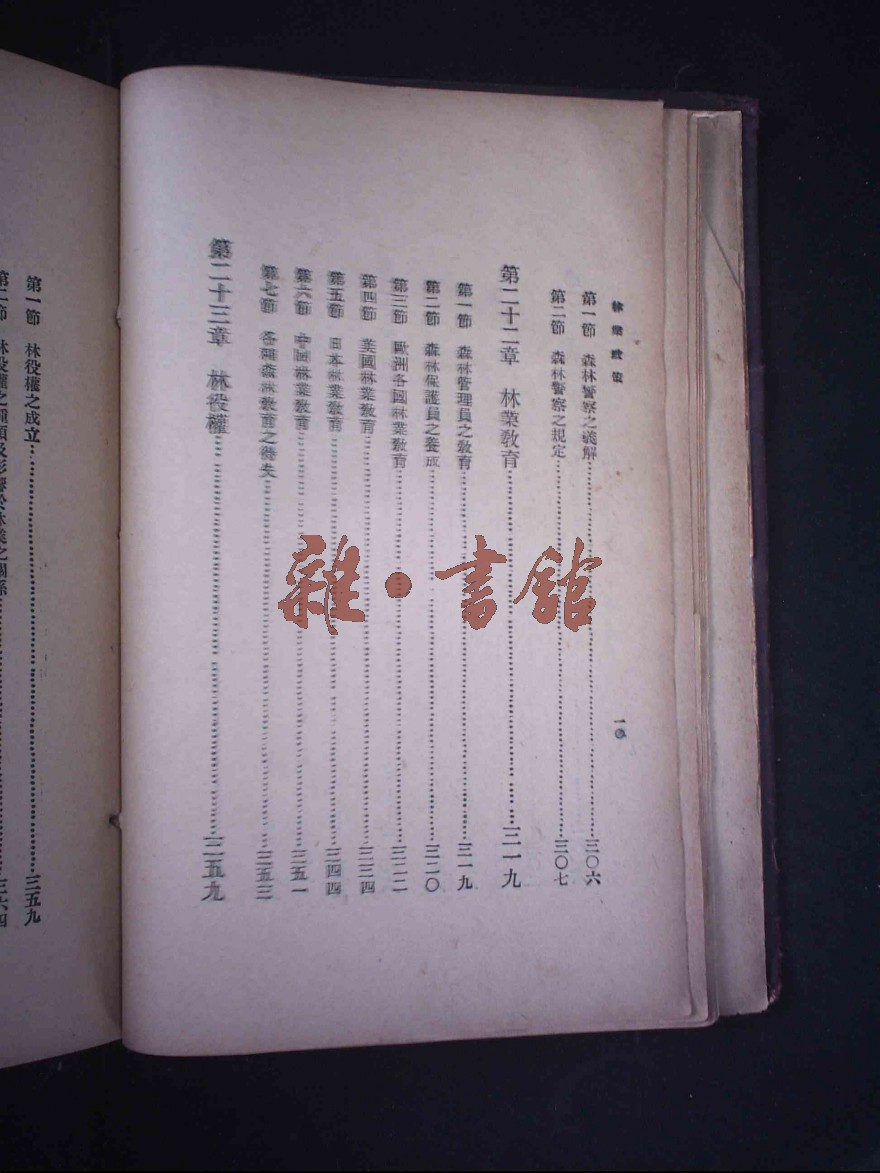 林業政策
一〇
第一節 森林警察之義解……三〇六
第二節 森林警察之規定……三〇七
第二十二章 林業教育……三一九
第一節 森林管理員之教育……三一九
第二節 森林保護員之養成……三二〇
第三節 歐洲各國林業教育……三二二
第四節 美國林業教育……三三四
第五節 日本林業教育……三四四
第六節 中國林業教育……三五一
第七節 各種森林教育之得失……三五三
第二十三章 林役權……三五九
第一節 林役權之成立……三五九
第二節 林役權之種類及影響於林業之關係……三六四
雜·書館